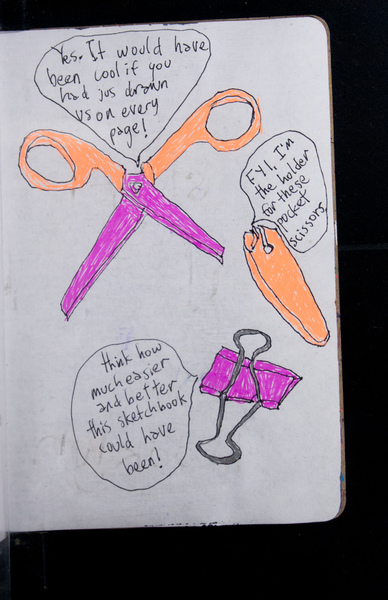 Yes. It would have
been cool if you
had jus drawn
us on every
page!
FYI, I'm
the holder
for these
pocket
scissors.
think how
much easier
and better
this sketchbook
could have
been!